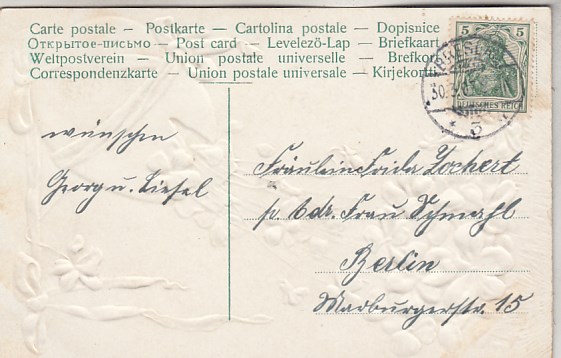 Carte postale – Postkarte – Cartolina postale – Dopisnice
Открытое-письмо – Post card – Levelező-Lap – Briefkaart
Weltpostverein – Union postale universelle – Brefkort
Correspondenzkarte – Union postale universale – Kirjekortti
5 5
DEUTSCHES REICH
30.
5
wünschen
Georg u. Liesel
Fräulein Frida Jochert
p. Adr. Frau Schmahl
Berlin
Marburgerstr. 15